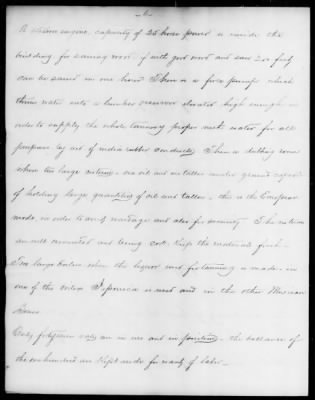 A steam engine, capacity of 25 horse power is inside the
building for sawing wood. If with good wood and saw 200 feet
can be sawed in one hour. There is a force pump which
throws water into a lumber reservoir elevated high enough in
order to supply the whole tannery proper with water for all
purposes by aid of india rubber conducts. There is a clothing room
when two large cisterns one oil and one tallow under ground capable
of holding large quantities of oil and tallow this is the European
mode, in order to avoid wastage and also for security. The cisterns
are well cemented and being cool. Keeps the materials fresh.
Two large boilers when the liquor used for tanning is made in
one of the boilers Japonica is used and in the other Mexican
Only fortyfour vats are in use out in the ballance of
the one hundred are kept aside for want of labor